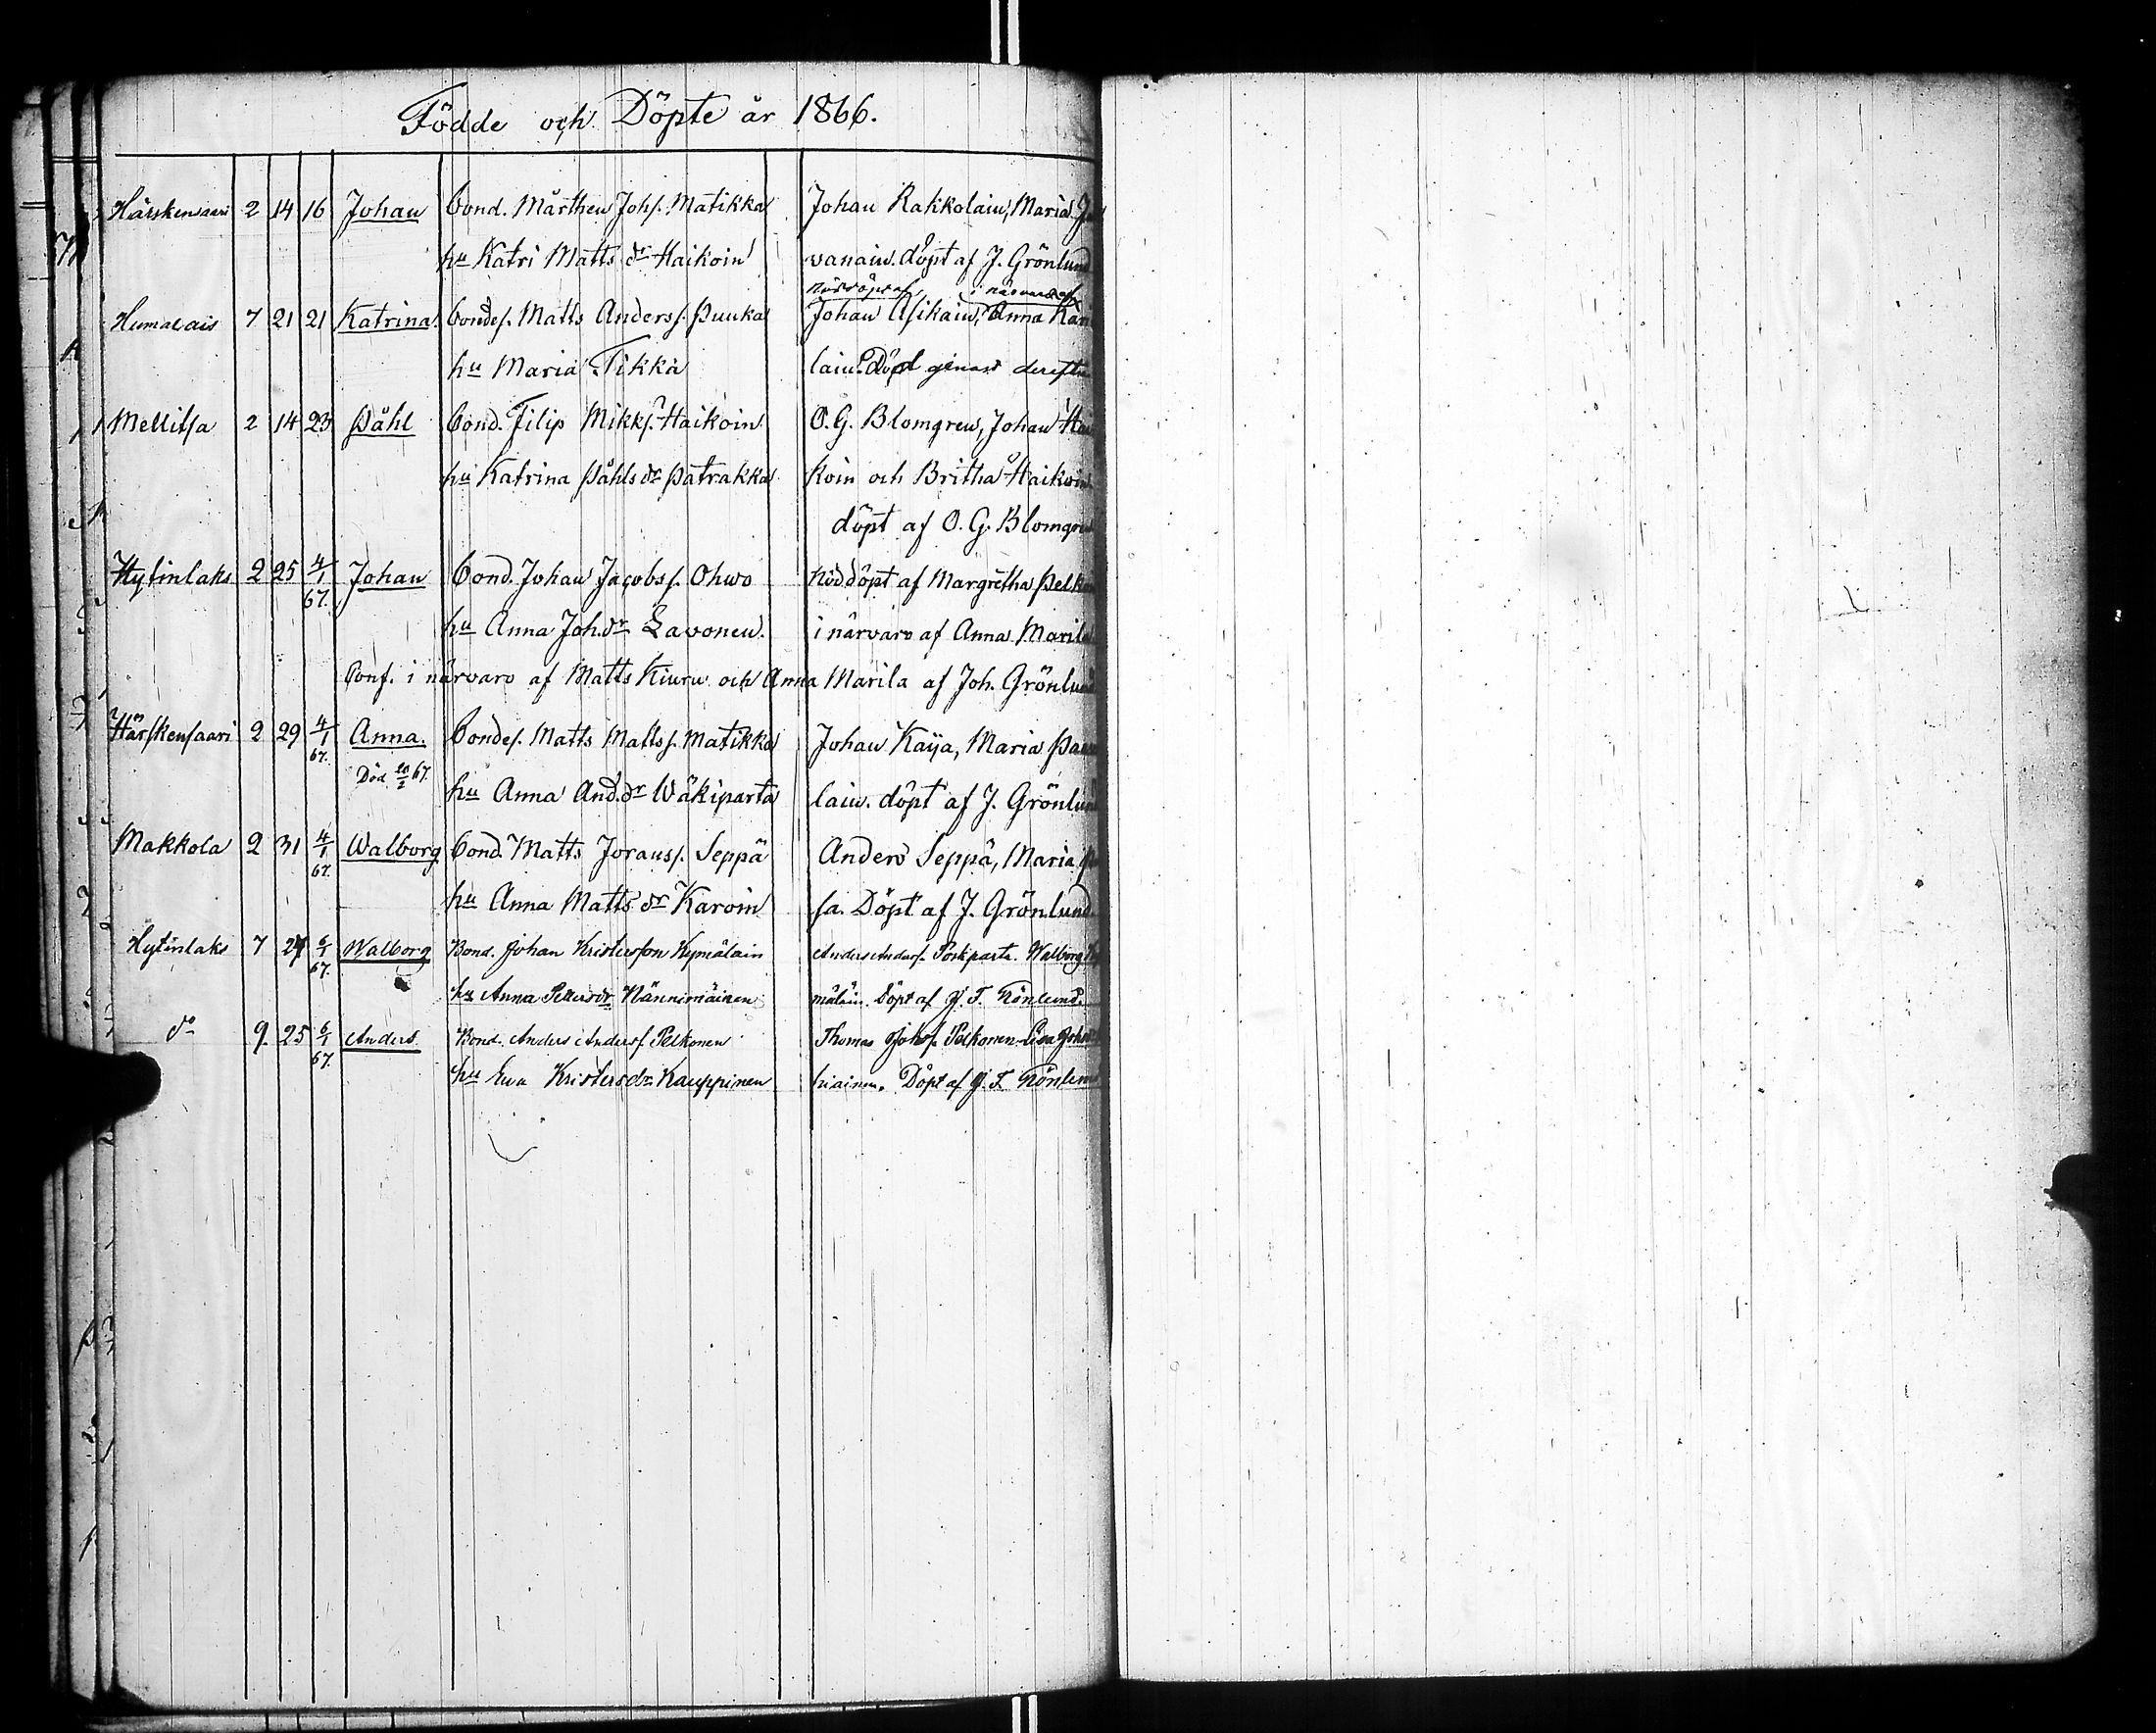 Födde och Döpte år 1866.
Härskensaari 2 14 16 Johan Bond. Mårthen Johs. Matikka Johan Rakkolain, Maria
hu Katri Matts dr Haikoin vanain. döpt af J. Grönlund
nöddöpt af, i närvaro af
7 21 21 Katrina Bondes. Matts Anderss. Puuka Johan Asikain, Anna
hu Maria Tikka lain. Död genast derefter
Mellitsa 2 14 23 Påhl Bond. Filip Mikks. Haikoin O. G. Blomgren, Johan Hai
hu Katrina Påhls dr Patrakka koin och Britha Haikoin
döpt af O. G. Blomgren
Hytinlaks 2 25 4/1 67. Johan Bond. Johan Jacobss. Ohwo Nöddöpt af Margretha Pelko
hu Anna Joh. dr Lavonen. i närvaro af Anna Marila
Conf. i närvaro af Matts Kiuru och Anna Marila af Joh. Grönlund
Härskensaari 2 29 4/1 67. Anna. Bondes. Matts Mattss. Matikka Johan Kaija, Maria
Död 20/2 67.
hu Anna And. dr Wäkiparta lain. döpt af J. Grönlund
Makkola 2 31 4/1 67. Walborg Bond. Matts Göranss. Seppä Anders Seppä, Maria
hu Anna Matts dr Karoin sa. Döpt af J. Grönlund.
Hytinlaks 7 27 6/1 67. Walborg Bond. Johan Kristersson Kymäläin Anders Anderss. Walborg Ky
hu Anna Petersdr Nännimäinen mäläin. Döpt af J. F. Grönlund.
do 9 25 6/1 67. Anders. Bond. Anders Anderss. Pelkonen Thomas Johss. Pelkonen Lisa
hu Ewa Kristersdr. Kauppinen hiainen. Döpt af J. F. Grönlund